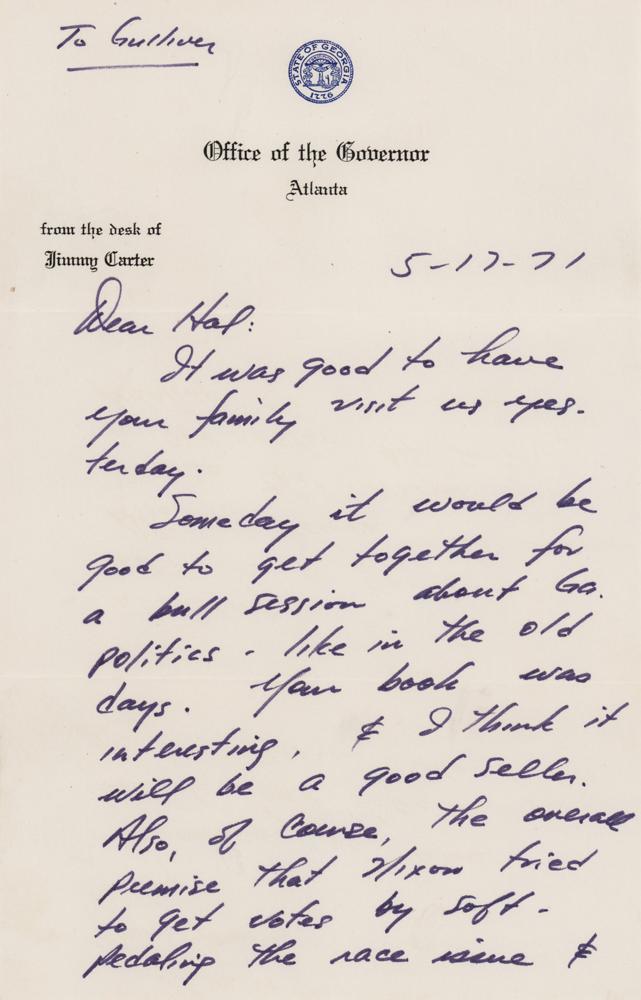 To Gulliver
STATE OF GEORGIA
1776
Office of the Governor
Atlanta
from the desk of
Jimmy Carter
5-17-71
Dear Hal:
It was good to have
your family visit us yes-
terday.
Someday it would be
good to get together for
a bull session about Ga.
politics - like in the old
days. Your book was
interesting, & I think it
will be a good seller.
Also, of course, the overall
premise that Nixon tried
to get votes by soft-
pedaling the race issue &